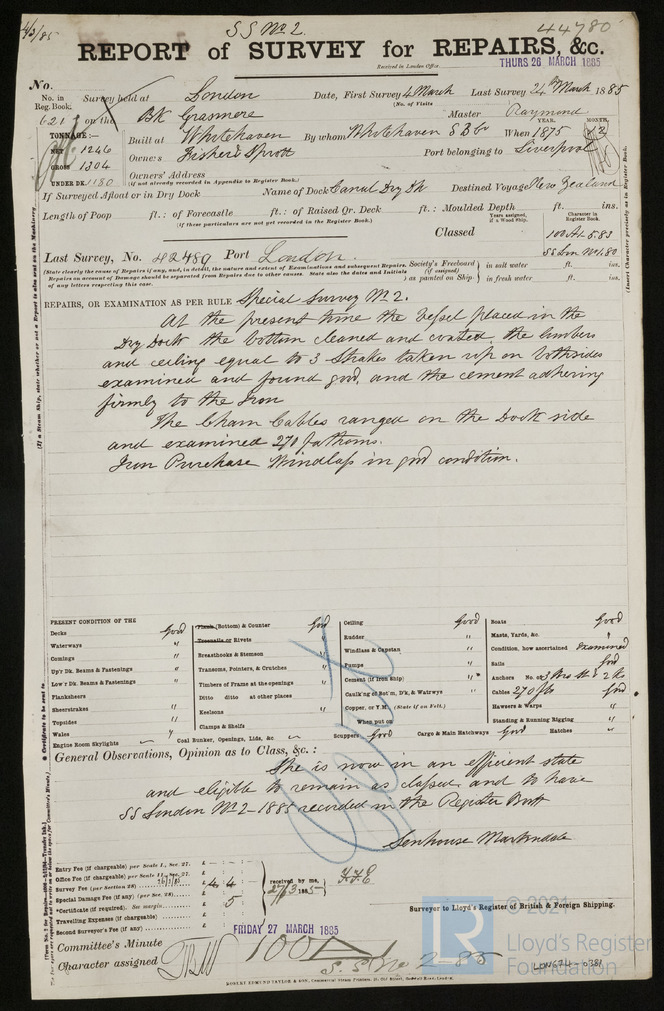 4/3/85
SS No 2.
44780
REPORT of SURVEY for REPAIRS, &c.
Received in London Office
THURS 26 MARCH 1885
No.
No. in Reg. Book. Survey held at London Date, First Survey 4 March Last Survey 24th March 1885
(No. of Visits
621 on the Bk Grasmere Master Raymond
TONNAGE:—
NET 1246
GROSS 1304
UNDER DK. 1180
Built at Whitehaven By whom Whitehaven S B Co When 1875 YEAR. MONTH. 12
Owners Fisher & Sprott Port belonging to Liverpool
Owners' Address
(if not already recorded in Appendix to Register Book.)
If Surveyed Afloat or in Dry Dock Name of Dock Canal Dry Dk Destined Voyage New Zealand
Length of Poop ft.: of Forecastle ft.: of Raised Qr. Deck ft.: Moulded Depth ft. ins.
(If these particulars are not yet recorded in the Register Book.)
Years assigned, if a Wood Ship.
Character in Register Book.
Classed 100 A1 5.83
SS Lon No 1.80
Last Survey, No. 42489 Port London.
(State clearly the cause of Repairs if any, and, in detail, the nature and extent of Examinations and subsequent Repairs. Repairs on account of Damage should be separated from Repairs due to other causes. State also the dates and Initials of any letters respecting this case.
Society's Freeboard (if assigned) as painted on Ship
in salt water ft. ins.
in fresh water ft. ins.
REPAIRS, OR EXAMINATION AS PER RULE Special Survey No 2.
At the present time the Vessel placed in the
Dry Dock the bottom cleaned and coated, the limbers
and ceiling equal to 3 Strakes taken up on bothsides
examined and found good, and the cement adhering
firmly to the Iron
The Chain Cables ranged on the Dock side
and examined 270 fathoms.
Iron Purchase Windlass in good condition.
PRESENT CONDITION OF THE
Decks Good
Waterways "
Comings "
Up'r Dk. Beams & Fastenings "
Low'r Dk. Beams & Fastenings "
Planksheers
Sheerstrakes "
Topsides "
Wales "
Engine Room Skylights
Plank (Bottom) & Counter Good
Treenails or Rivets "
Breasthooks & Stemson "
Transoms, Pointers, & Crutches "
Timbers of Frame at the openings
Ditto ditto at other places
Keelsons "
Clamps & Shelfs
Coal Bunker, Openings, Lids, &c "
Ceiling Good
Rudder "
Windlass & Capstan "
Pumps "
Cement (if Iron Ship) "
Caulk'ng of Bot'm, D'k, & Watrways "
Copper, or Y.M. (State if on Felt.)
When put on
Scuppers Good Cargo & Main Hatchways Good
Boats Good
Masts, Yards, &c. "
Condition, how ascertained Examined
Sails Good
Anchors No. of
Cables 270 fts Good
Hawsers & Warps "
Standing & Running Rigging "
Hatches "
Cert
General Observations, Opinion as to Class, &c.:
She is now in an efficient state
and eligible to remain as classed and to have
SS London No 2-1885 recorded in the Register Book
Senhouse Martindale
Entry Fee (if chargeable) per Scale I., Sec. 27. £
Office Fee (if chargeable) per Scale II., Sec. 27. £
Survey Fee (per Section 28) £ 4. 4
Special Damage Fee (if any) (per Sec. 28) £
*Certificate (if required). See margin. £ 5
Travelling Expenses (if chargeable) £
Second Surveyor's Fee (if any) £
received by me,
27/3 1885
Surveyor to Lloyd's Register of British & Foreign Shipping.
Committee's Minute FRIDAY 27 MARCH 1885
Character assigned 100 A
S.S No 2-85
ROBERT EDMUND TAYLOR & SON, Commercial Steam Printers, 19, Old Street, Goswell Road, London.
LR
© 2021
Lloyd's Register
Foundation
LON674-0381